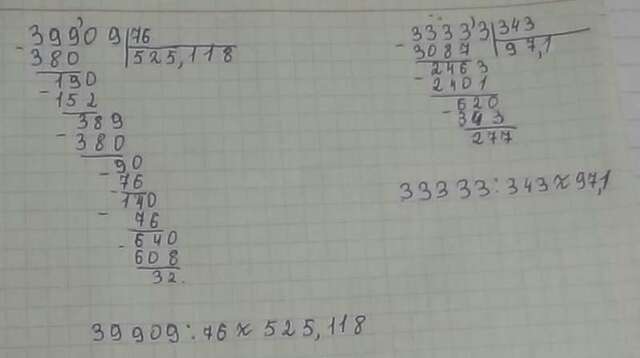 39909 76
- 380 525,118
190
- 152
389
- 380
- 90
76
- 140
- 76
640
- 608
32.
39909 : 76 ≈ 525,118
- 33333 343
3087 97,1
2463
- 2401
620
- 343
277
33333 : 343 ≈ 97,1